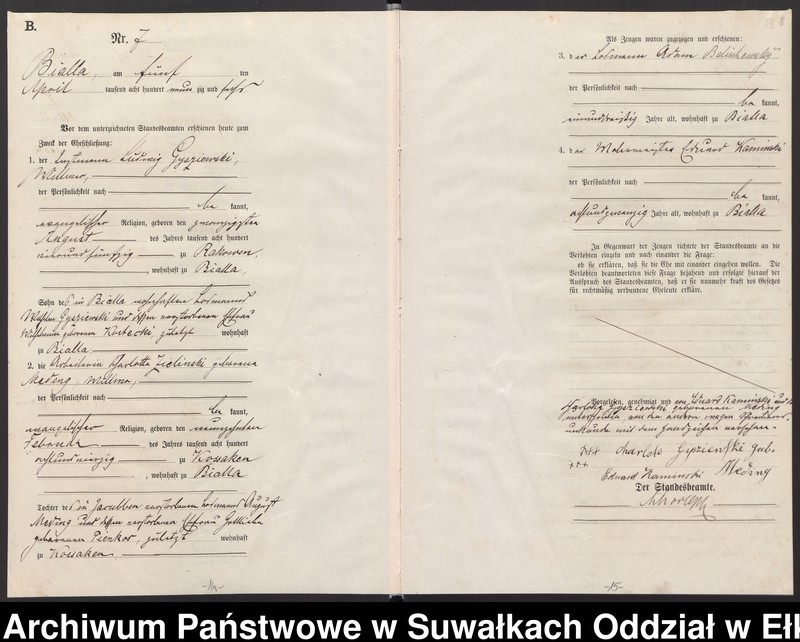 B.
Nr. 7
Bialla, am fünf ten
April tausend acht hundert neun zig und sechs
Vor dem unterzeichneten Standesbeamten erschienen heute zum
Zweck der Eheschließung:
1. der Ludwig Gysziewski,
Wittwer,
der Persönlichkeit nach
be kannt,
evangelischer Religion, geboren den zwanzigsten
August des Jahres tausend acht hundert
vierundfünfzig zu Rakowen,
, wohnhaft zu Bialla,
Sohn des in Bialla wohnhaften Losmanns
Wilhelm Gysziewski und dessen verstorbenen Ehefrau
Wilhelmine geborenen Kostecki, zuletzt wohnhaft
zu Bialla
2. die Arbeiterin Charlotte Zielinski geborene
Meding, Wittwe,
der Persönlichkeit nach
be kannt,
evangelischer Religion, geboren den neunzehnten
Februar des Jahres tausend acht hundert
achtundvierzig zu Kossaken
, wohnhaft zu Bialla
Tochter des zu Jacubben verstorbenen Losmanns August
Meding und dessen verstorbenen Ehefrau Gottliebe
geborenen Pienkos, zuletzt wohnhaft
zu Kossaken,
-14-
8
Als Zeugen waren zugezogen und erschienen:
3. der Losmann Adam
der Persönlichkeit nach
be kannt,
einunddreißig Jahre alt, wohnhaft zu Bialla
4. der Malermeister Eduard Kaminski
der Persönlichkeit nach
be kannt,
achtundzwanzig Jahre alt, wohnhaft zu Bialla
In Gegenwart der Zeugen richtete der Standesbeamte an die
Verlobten einzeln und nach einander die Frage:
ob sie erklären, daß sie die Ehe mit einander eingehen wollen. Die
Verlobten beantworteten diese Frage bejahend und erfolgte hierauf der
Ausspruch des Standesbeamten, daß er sie nunmehr kraft des Gesetzes
für rechtmäßig verbundene Eheleute erkläre.
Vorgelesen, genehmigt und von Eduard Kaminski und
Charlotte Gysziewski geborenen Meding
unterschrieben, von den andern wegen
mit dem Handzeichen versehen.
+++ Charlote Gysziewski geb.
+++ Meding
Eduard Kaminski
Der Standesbeamte.
-15-
Archiwum Państwowe w Suwałkach Oddział w Eł